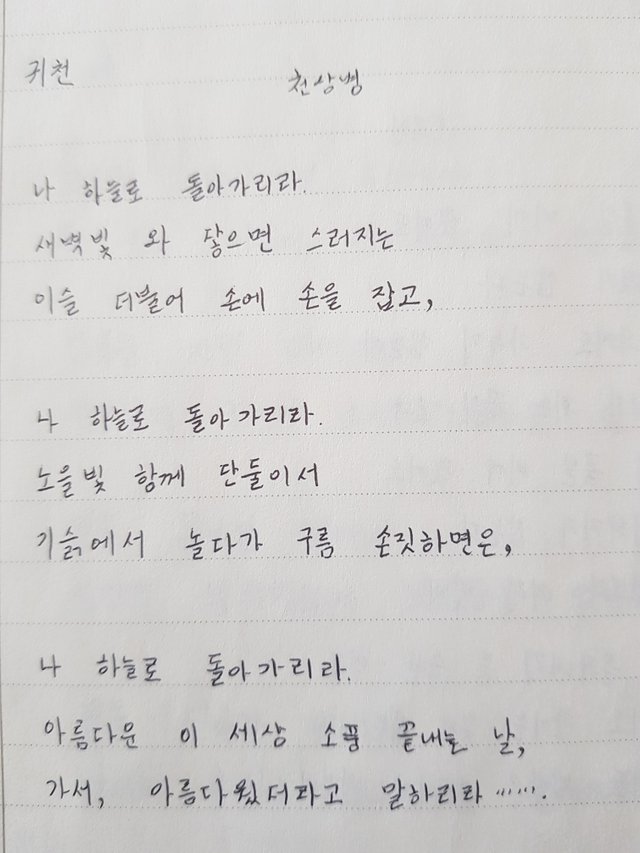 귀천 천상병
나 하늘로 돌아가리라.
새벽빛 와 닿으면 스러지는
이슬 더불어 손에 손을 잡고,
나 하늘로 돌아가리라.
노을빛 함께 단둘이서
기슭에서 놀다가 구름 손짓하면은,
나 하늘로 돌아가리라.
아름다운 이 세상 소풍 끝내는 날,
가서, 아름다웠더라고 말하리라······.